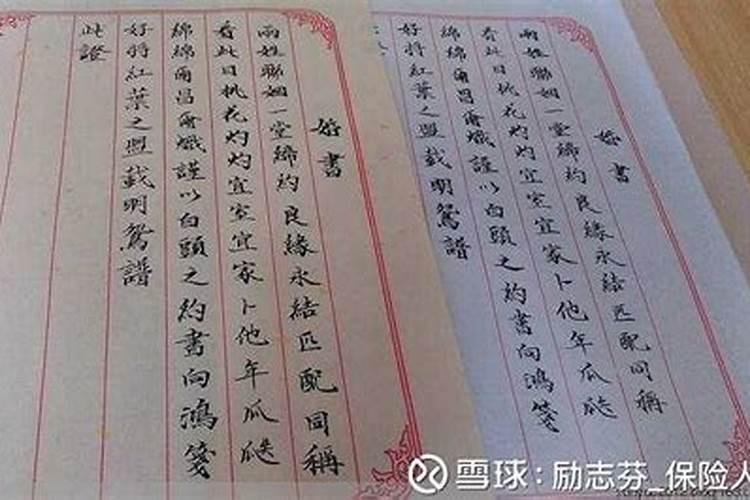 婚書
兩姓聯姻一堂締約良緣永結匹配同稱
看此日桃花灼灼宜室宜家卜他年瓜瓞
綿綿爾昌爾熾謹以白頭之約書向鴻箋
好將紅葉之盟載明鴛譜
此證
婚書
兩姓聯姻一堂締約良緣永結匹配同稱
看此日桃花灼灼宜室宜家卜他年瓜瓞
綿綿爾昌爾熾謹以白頭之約書向鴻箋
好將紅葉之盟載明鴛譜
雪球：励志芬_保险人